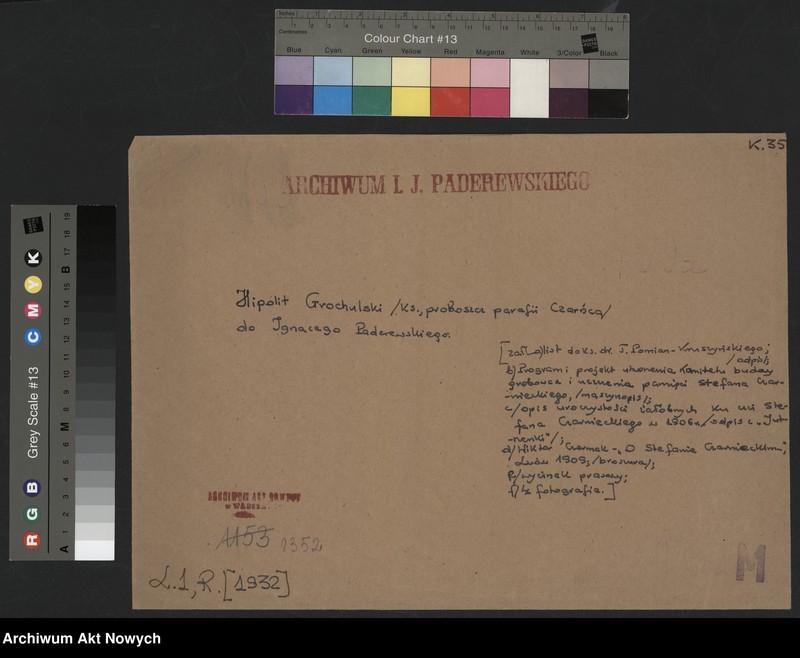 Inches
Centimetres
Colour Chart #13
Blue Cyan Green Yellow Red Magenta White 3/Color Black
Grey Scale #13
R G B C M Y K
A 1 2 3 4 5 6 M 8 9 10 11 12 13 14 15 B 17 18 19
K.35
ARCHIWUM I. J. PADEREWSKIEGO
Hipolit Grochulski /ks., proboszcz parafii Czarńca/
do Ignacego Paderewskiego.
[zał. a) list do ks. dr. J. Pomian-Kruszyńskiego;
/odpis/;
b) Program i projekt utworzenia Komitetu budowy
grobowca i uczczenia pamięci Stefana Czar-
-nieckiego, /maszynopis/;
c/ opis uroczystości żałobnych ku czci Ste-
fana Czarnieckiego w 1906r. /odpis z „Jut-
-rzenki"/;
d/ Wiktor Czermak - „O Stefanie Czarnieckim",
Lwów 1909; /broszura/;
e/ wycinek prasowy;
f/ 4 fotografie.]
ARCHIWUM AKT NOWYCH
w WARSZ.
1153 1352
L.1, R. [1932]
M
Archiwum Akt Nowych